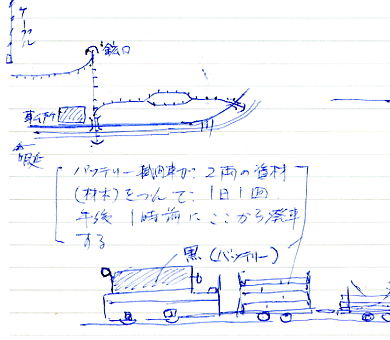 ケーブル
鉱口
事ム所
バッテリー機関車が2両の資材
(材木)をつんで、1日1回
午後1時前にここから発車
する
黒(バッテリー)